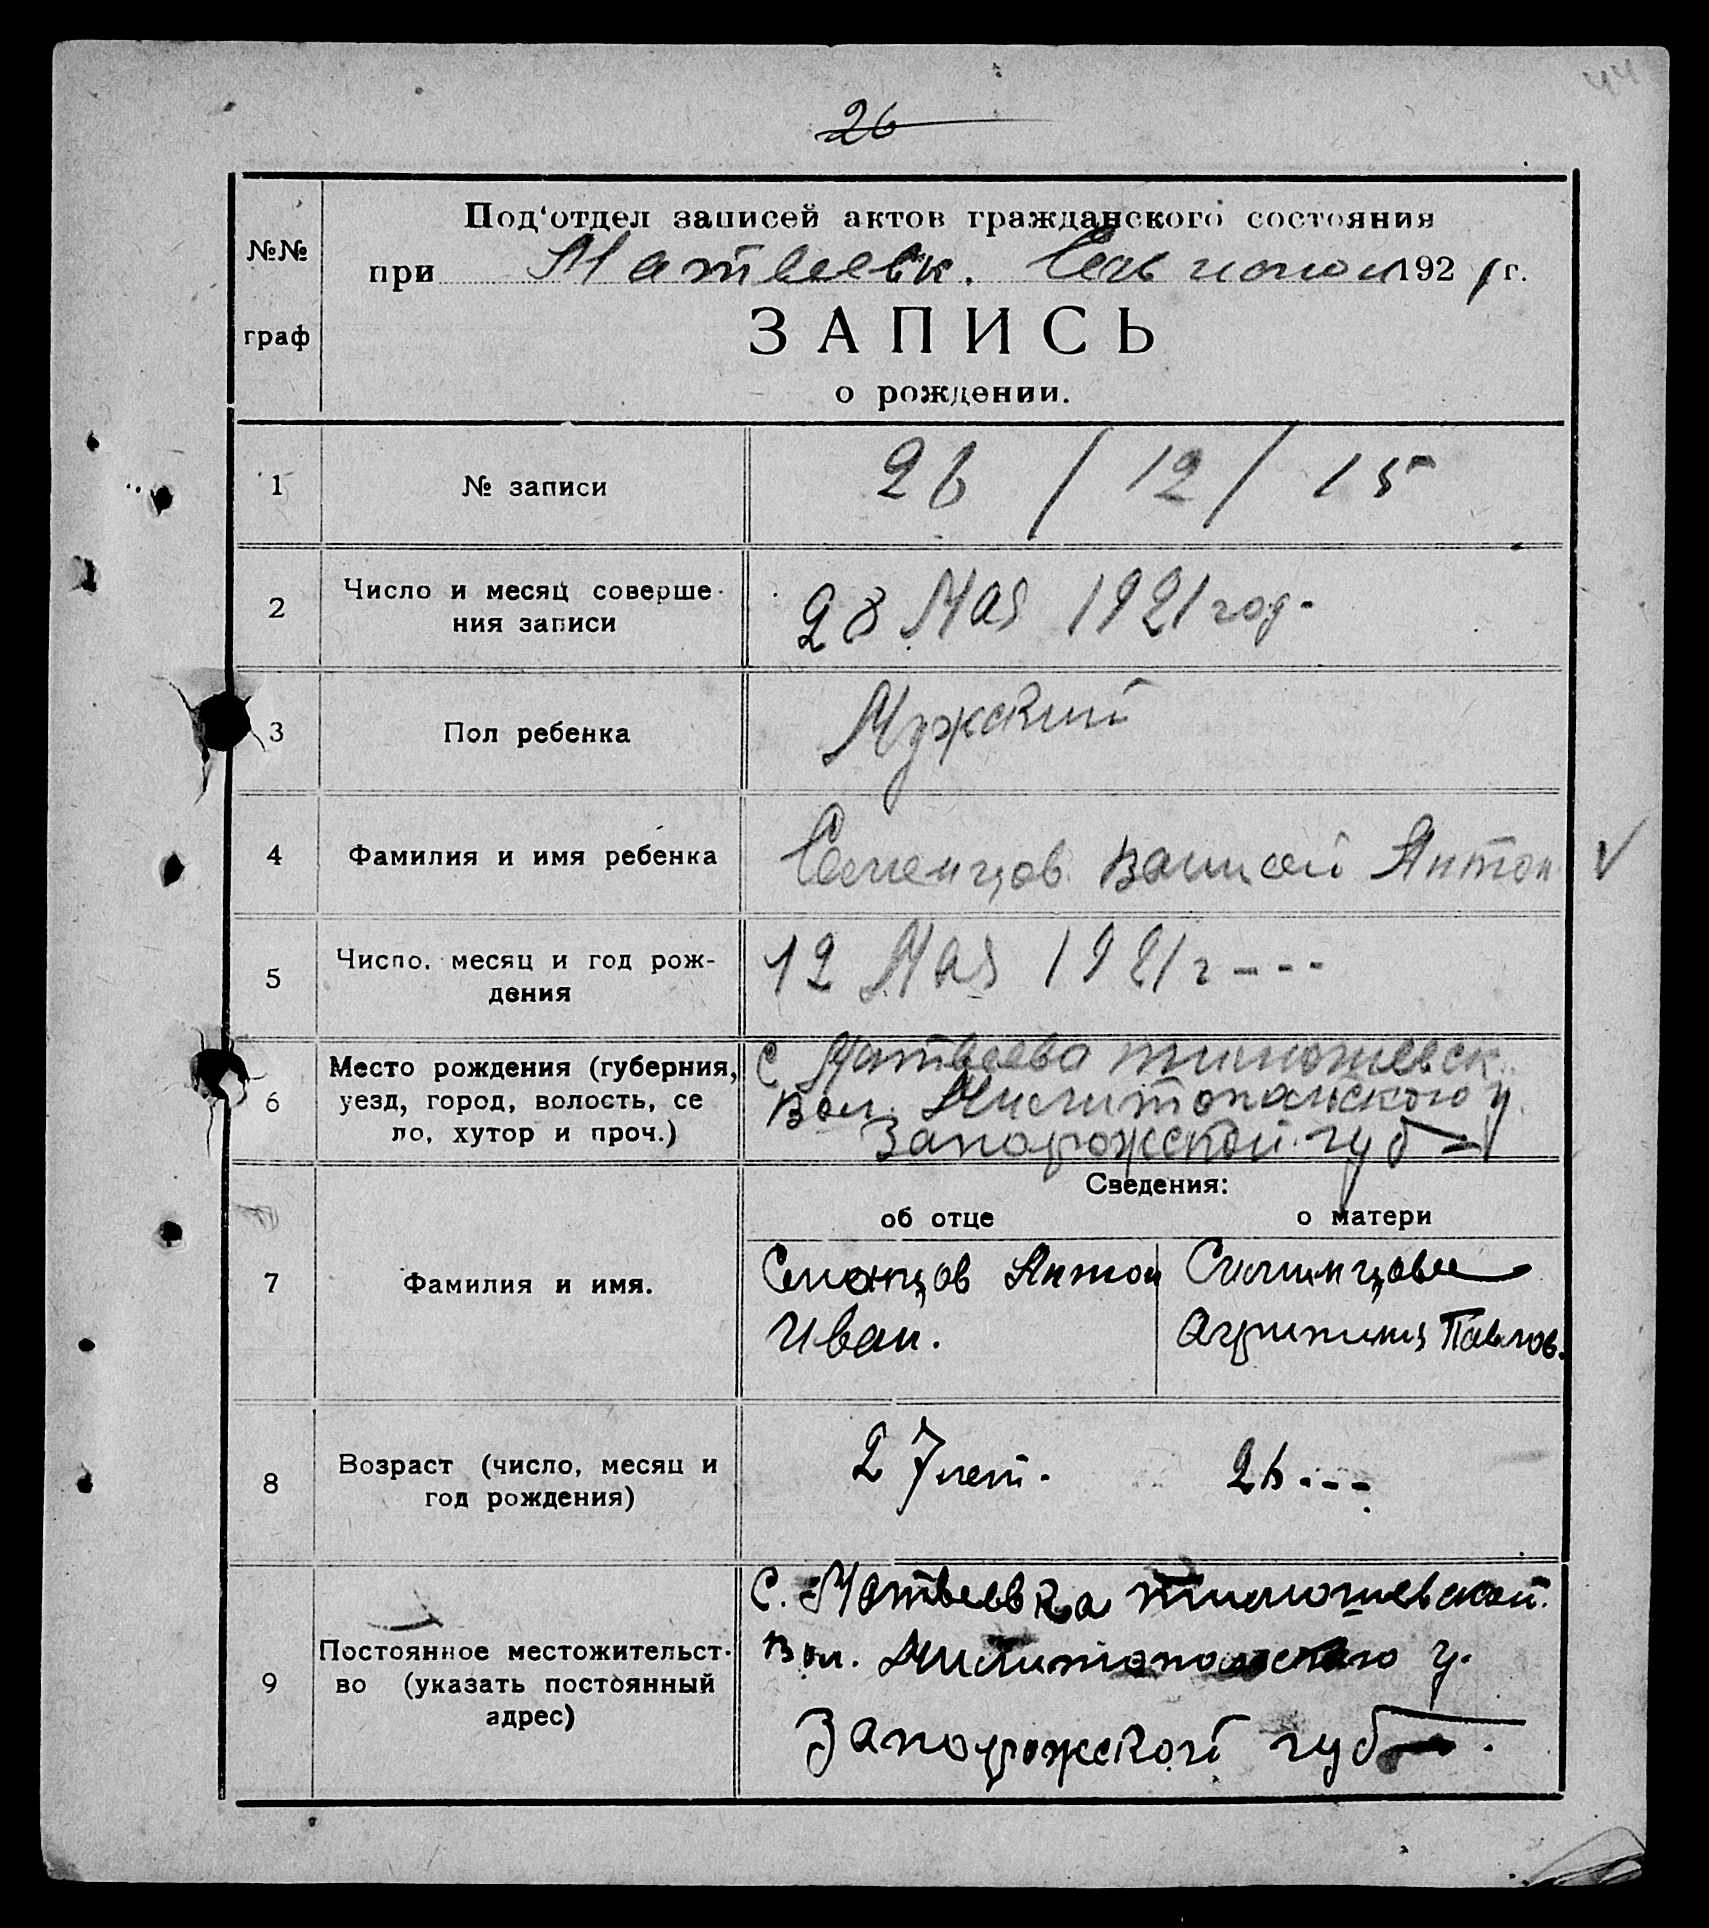 44
26
Под'отдел записей актов гражданского состояния
№№
граф
при Матвеевк. 1921 г.
ЗАПИСЬ
о рождении.
1 № записи 26 / 12 / 15
2 Число и месяц соверше-
ния записи
28 Мая 1921 год.
3 Пол ребенка Мужский
4 Фамилия и имя ребенка Семенцов Антон ✓
5 Число, месяц и год рож-
дения
12 Мая 1921 г - - -
6 Место рождения (губерния,
уезд, город, волость, се
ло, хутор и проч.)
С. Матвеева Тимошевск.
Вол. Милитопольского у.
Запорожской губ
Сведения:
об отце о матери
7 Фамилия и имя.
Семенцов Антон
Иван.
Павлов.
8 Возраст (число, месяц и
год рождения)
27 лет. 26 . - - -
9 Постоянное местожительст-
во (указать постоянный
адрес)
С. Матвеевка Тимошевской.
Вол. Милитопольского у.
Запорожской губ.